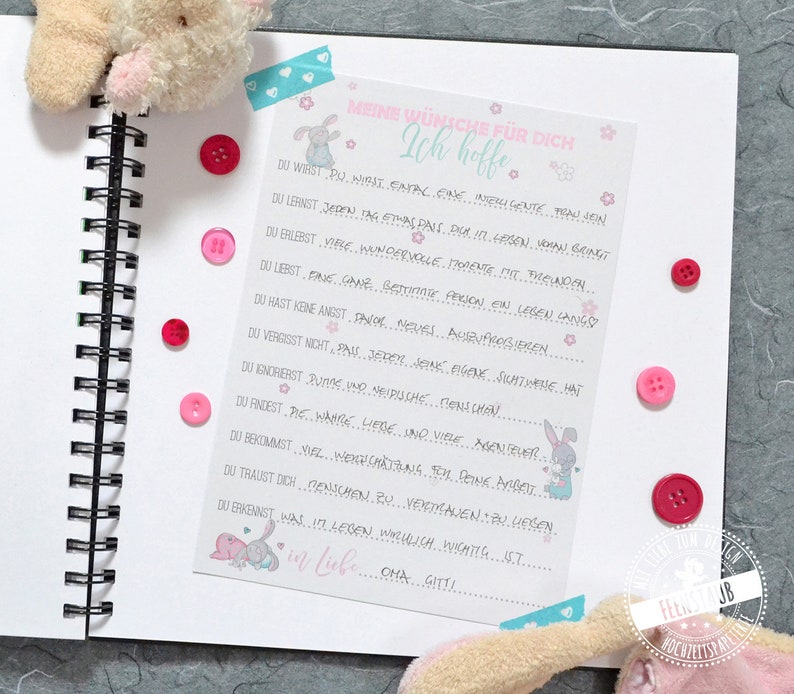 MEINE WÜNSCHE FÜR DICH
Ich hoffe
DU WIRST DU WIRST EINMAL EINE INTELIGENTE FRAU SEIN
DU LERNST JEDEN TAG ETWAS DASS DICH IM LEBEN VORAN BRINGT
DU ERLEBST VIELE WUNDERVOLLE MOMENTE MIT FREUNDEN
DU LIEBST EINE GANZ BESTIMMTE PERSON EIN LEBEN LANG
DU HAST KEINE ANGST DAVOR NEUES AUSZUPROBIEREN
DU VERGISST NICHT, DASS JEDER SEINE EIGENE SICHTWEISE HAT
DU IGNORIERST DUMME UND NEIDISCHE MENSCHEN
DU FINDEST DIE WAHRE LIEBE UND VIELE ABENTEUER
DU BEKOMMST VIEL WERTSCHÄTZUNG FÜR DEINE ARBEIT
DU TRAUST DICH MENSCHEN ZU VERTRAUEN + ZU LIEBEN
DU ERKENNST WAS IM LEBEN WIRKLICH WICHTIG IST
in Liebe OMA GITTI
MIT LIEBE ZUM DESIGN
FEENSTAUB
HOCHZEITSPAPETERIE